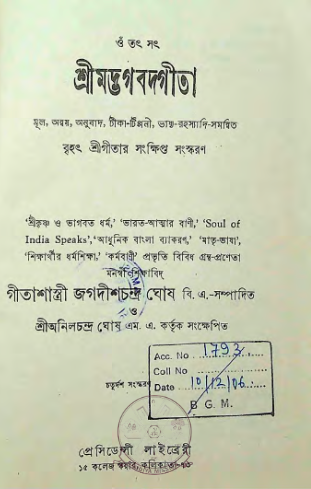 ওঁ তৎ সৎ
শ্রীমদ্ভগবদ্গীতা
মূল, অন্বয়, অনুবাদ, টীকা-টিপ্পনী, ভাষ্য-রহস্যাদি-সমন্বিত
বৃহৎ শ্রীগীতার সংক্ষিপ্ত সংস্করণ
'শ্রীকৃষ্ণ ও ভাগবত ধর্ম,' 'ভারত-আত্মার বাণী,' 'Soul of
India Speaks', 'আধুনিক বাংলা ব্যাকরণ,' 'মাতৃ-ভাষা',
'শিক্ষার্থীর ধর্মশিক্ষা,' 'কর্মবাণী' প্রভৃতি বিবিধ গ্রন্থ-প্রণেতা
গীতাশাস্ত্রী জগদীশচন্দ্র ঘোষ বি. এ.-সম্পাদিত
ও
শ্রীঅনিলচন্দ্র ঘোষ এম. এ. কর্তৃক সংক্ষেপিত
Acc. No 1793
Coll No
চতুর্দশ সংস্করণ
Date 10/12/06
B G M.
প্রেসিডেন্সী লাইব্রেরী
১৫ কলেজ স্কয়ার, কলিকাতা-৭৩